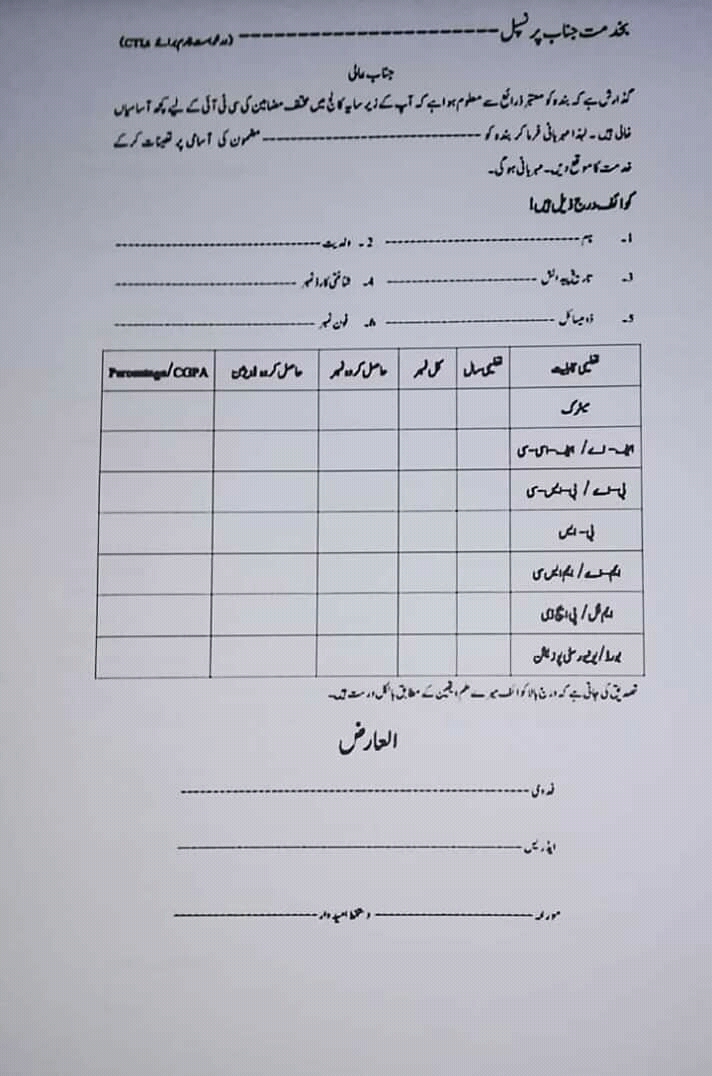 بخدمت جناب پرنسپل ------------------------ (درخواست فارم برائے CTIs)
جناب عالی
گذارش ہے کہ بندہ کو معتبر ذرائع سے معلوم ہوا ہے کہ آپ کے زیر سایہ کالج میں مختلف مضامین کی سی ٹی آئی کے لیے کچھ آسامیاں
خالی ہیں۔ لہذا مہربانی فرما کر بندہ کو ------------------------ مضمون کی آسامی پر تعینات کر کے
خدمت کا موقع دیں۔ مہربانی ہو گی۔
کوائف درج ذیل ہیں!
1۔ نام ------------------------ 2۔ ولدیت ------------------------
3۔ تاریخ پیدائش ------------------------ 4۔ شناختی کارڈ نمبر ------------------------
5۔ ڈومیسائل ------------------------ 6۔ فون نمبر ------------------------
تعلیمی قابلیت تعلیمی سال کل نمبر حاصل کردہ نمبر حاصل کردہ ڈویژن Percentage/CGPA
میٹرک
ایف-اے/ ایف-ایس-سی
بی-اے / بی-ایس-سی
بی-ایس
ایم-اے/ ایم ایس سی
ایم فل/ پی ایچ ڈی
بورڈ/یونیورسٹی پوزیشن
تصدیق کی جاتی ہے کہ درج بالا کوائف میرے علم و یقین کے مطابق بالکل درست ہیں۔
العارض
فدوی ------------------------
ایڈریس ------------------------
مورخہ ------------------------ دستخط امیدوار ------------------------